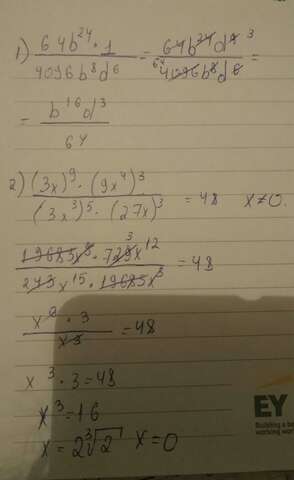 1) 64b^24 · 1 / 4096b^8d^6 = 64b^24d^9 3 / 64 4096b^8d^6 =
= b^16d^3 / 64
2) (3x)^9 · (9x^4)^3 / (3x^3)^5 · (27x)^3 = 48 x≠0.
19683x^9 · 729 3x^12 / 243x^15 · 19683x^3 = 48
x^9 · 3 / x^3 = 48
x^3 · 3 = 48
x^3 = 16
x = 2∛2 x = 0
EY
Building a be
working wor